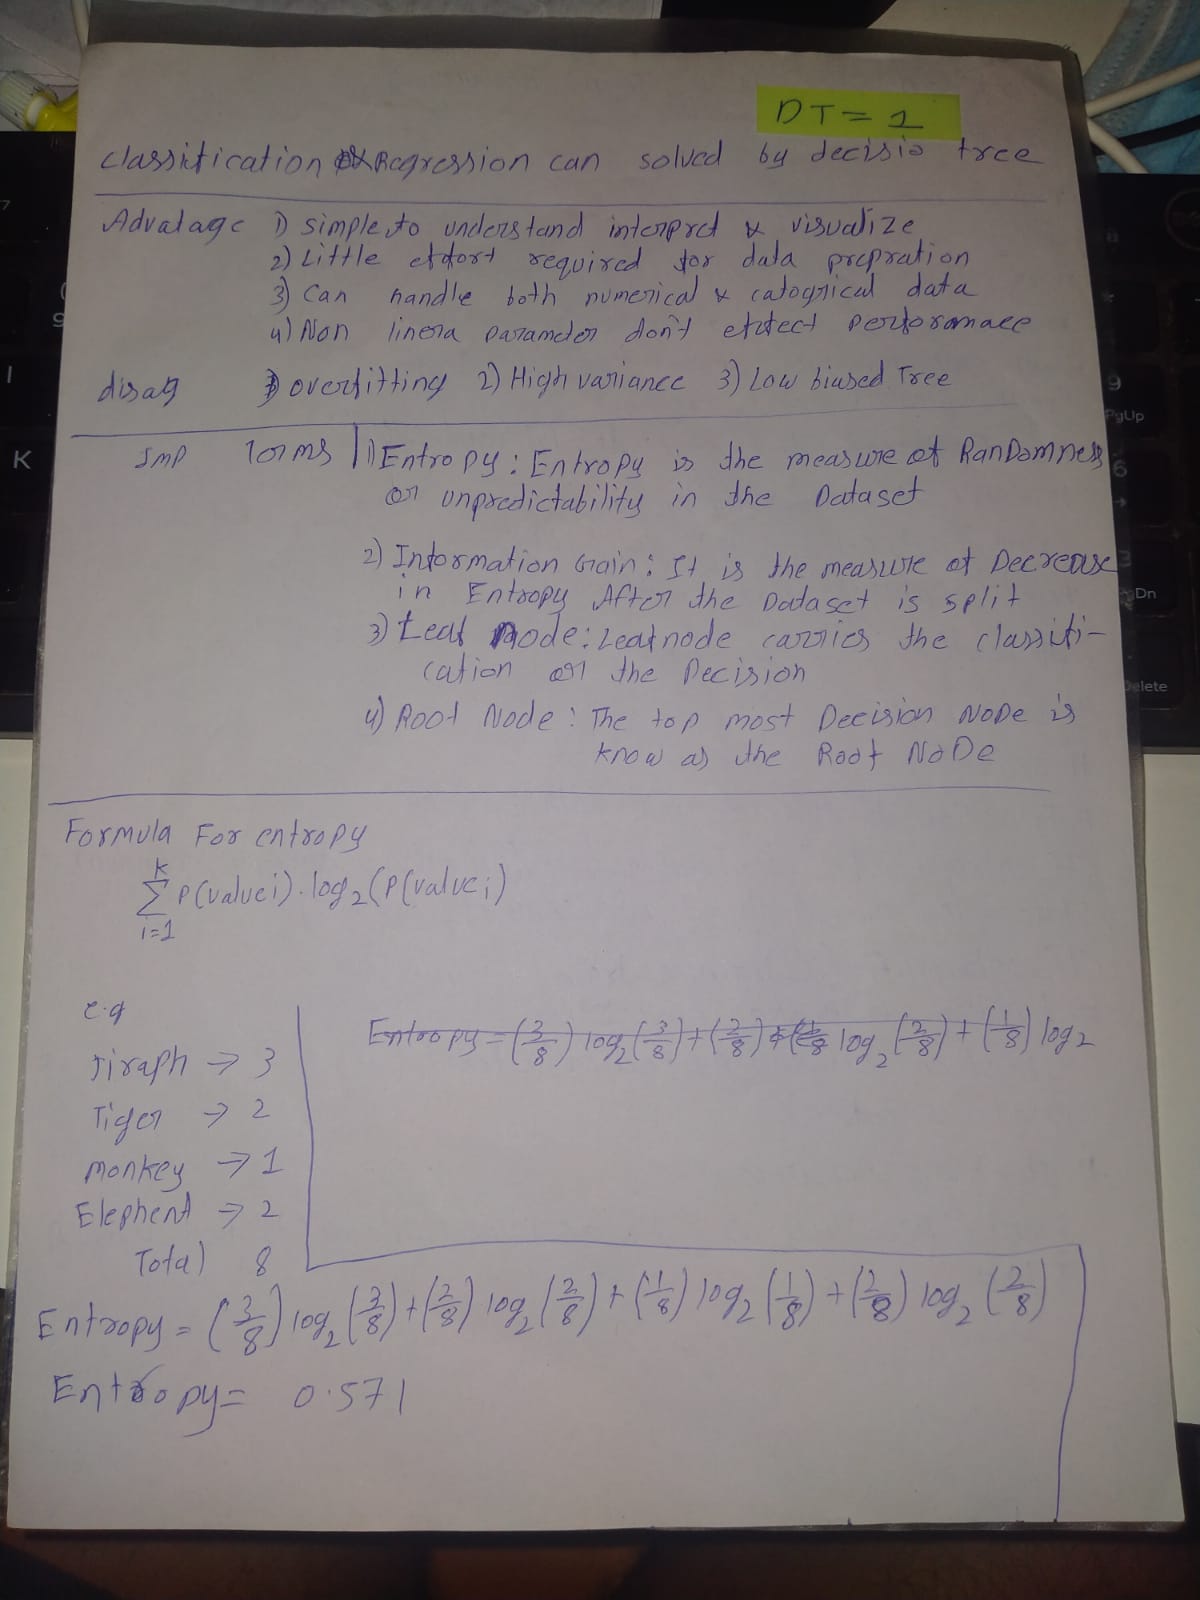 DT = 1
classification & Regression can solved by decisio tree
Advalage 1) simple to understand interpret & visualize
2) Little effort required for data prepration
3) Can handle both numerical & catogrical data
4) Non linera parameter don't effect performace
disag 1) overfitting 2) High variance 3) Low biased Tree
Imp Terms 1) Entropy : Entropy is the measure of RanDomness
or unpredictability in the Dataset
2) Information Gain : It is the measure of Decrease
in Entropy After the Dataset is split
3) Leaf node : Leafnode carries the classifi-
cation or the Decision
4) Root Node : The top most Decision NoDe is
know as the Root NoDe
Formula For entropy
k
∑ P(valuei).log2(P(valuei)
i=1
e.g
Jiraph → 3
Entropy = (3/8) log2(3/8) + (2/8) log2 (2/8) + (1/8) log2
Tiger → 2
monkey → 1
Elephent → 2
Total 8
Entropy = (3/8) log2 (3/8) + (2/8) log2 (2/8) + (1/8) log2 (1/8) + (2/8) log2 (2/8)
Entropy = 0.571